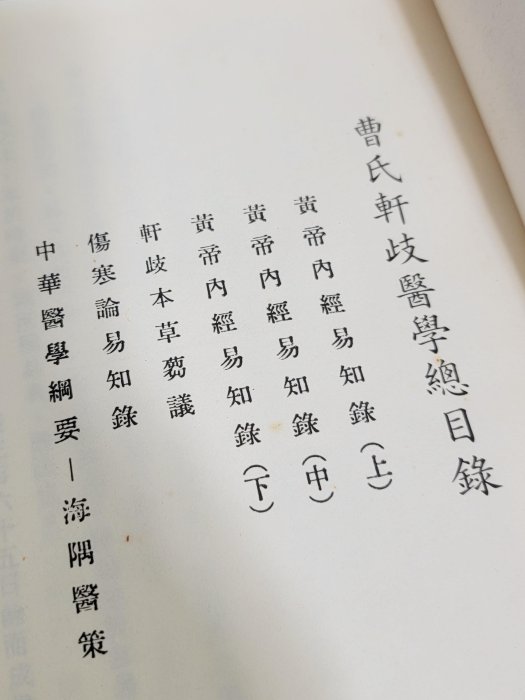 曹氏軒歧醫學總目錄
黃帝內經易知錄(上)
黃帝內經易知錄(中)
黃帝內經易知錄(下)
軒歧本草芻議
傷寒論易知錄
中華醫學綱要—海隅醫策